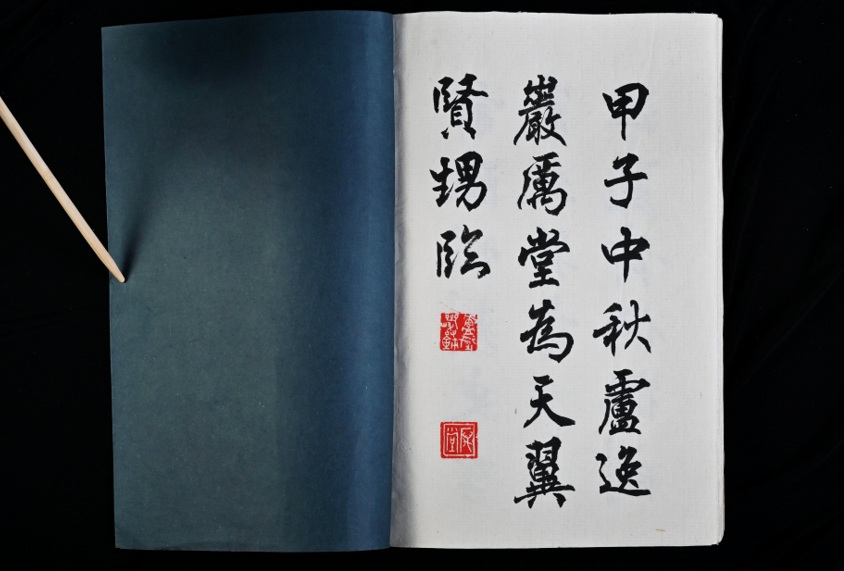 甲子中秋盧逸
巖厲堂為天翼
賢甥臨